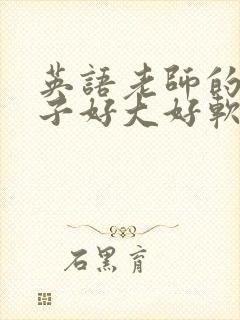 英語老師的
子好大好軟
石黑育